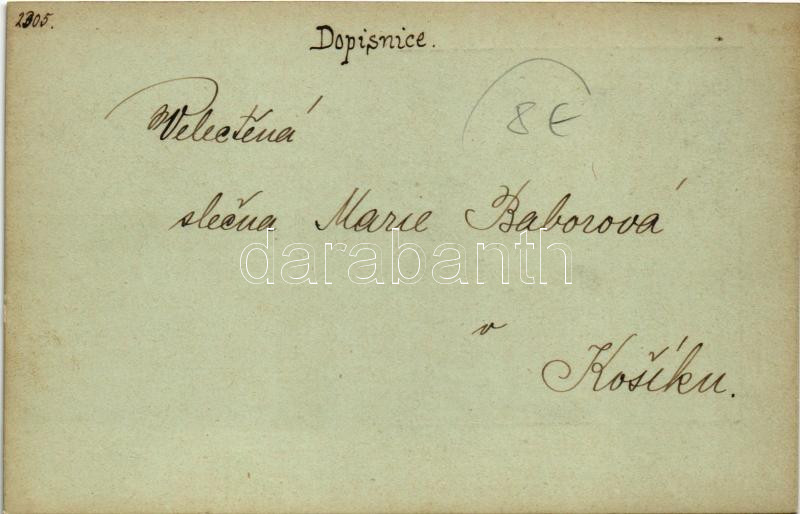 2305.
Dopisnice.
8 €
Velectěná
slečna Marie Baborová
darabanth
v
Košíku.